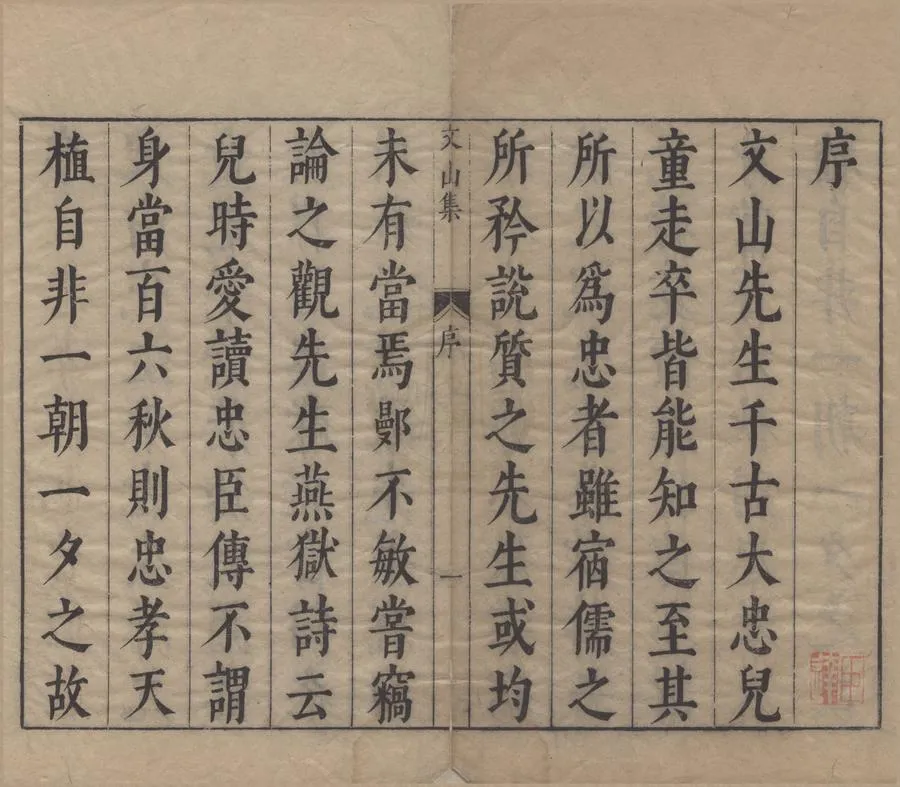 序
文山先生千古大忠兒
童走卒皆能知之至其
所以爲忠者雖宿儒之
所矜說質之先生或均
文山集 序 一
未有當焉鄤不敏嘗竊
論之觀先生燕獄詩云
兒時愛讀忠臣傳不謂
身當百六秋則忠孝天
植自非一朝一夕之故